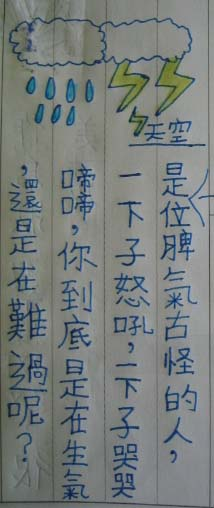 天空
是位脾氣古怪的人，
一下子怒吼，一下子哭哭
啼啼，你到底是在生氣
，還是在難過呢？